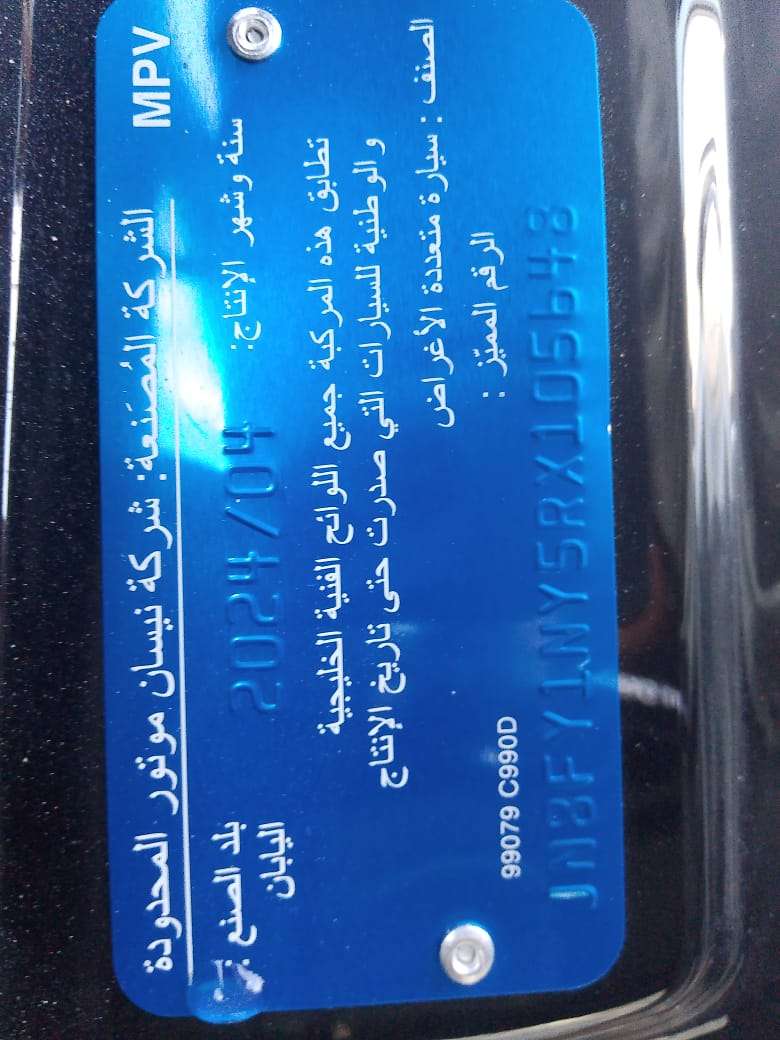 الشركة المُصَنعة: شركة نيسان موتور المحدودة MPV
سنة وشهر الإنتاج: 2024/04
بلد الصنع :
اليابان
تطابق هذه المركبة جميع اللوائح الفنية الخليجية
و الوطنية للسيارات التي صدرت حتى تاريخ الإنتاج
الصنف : سيارة متعددة الأغراض
الرقم المميّز :
99079 C990D
JN8FY1NY5RX105648